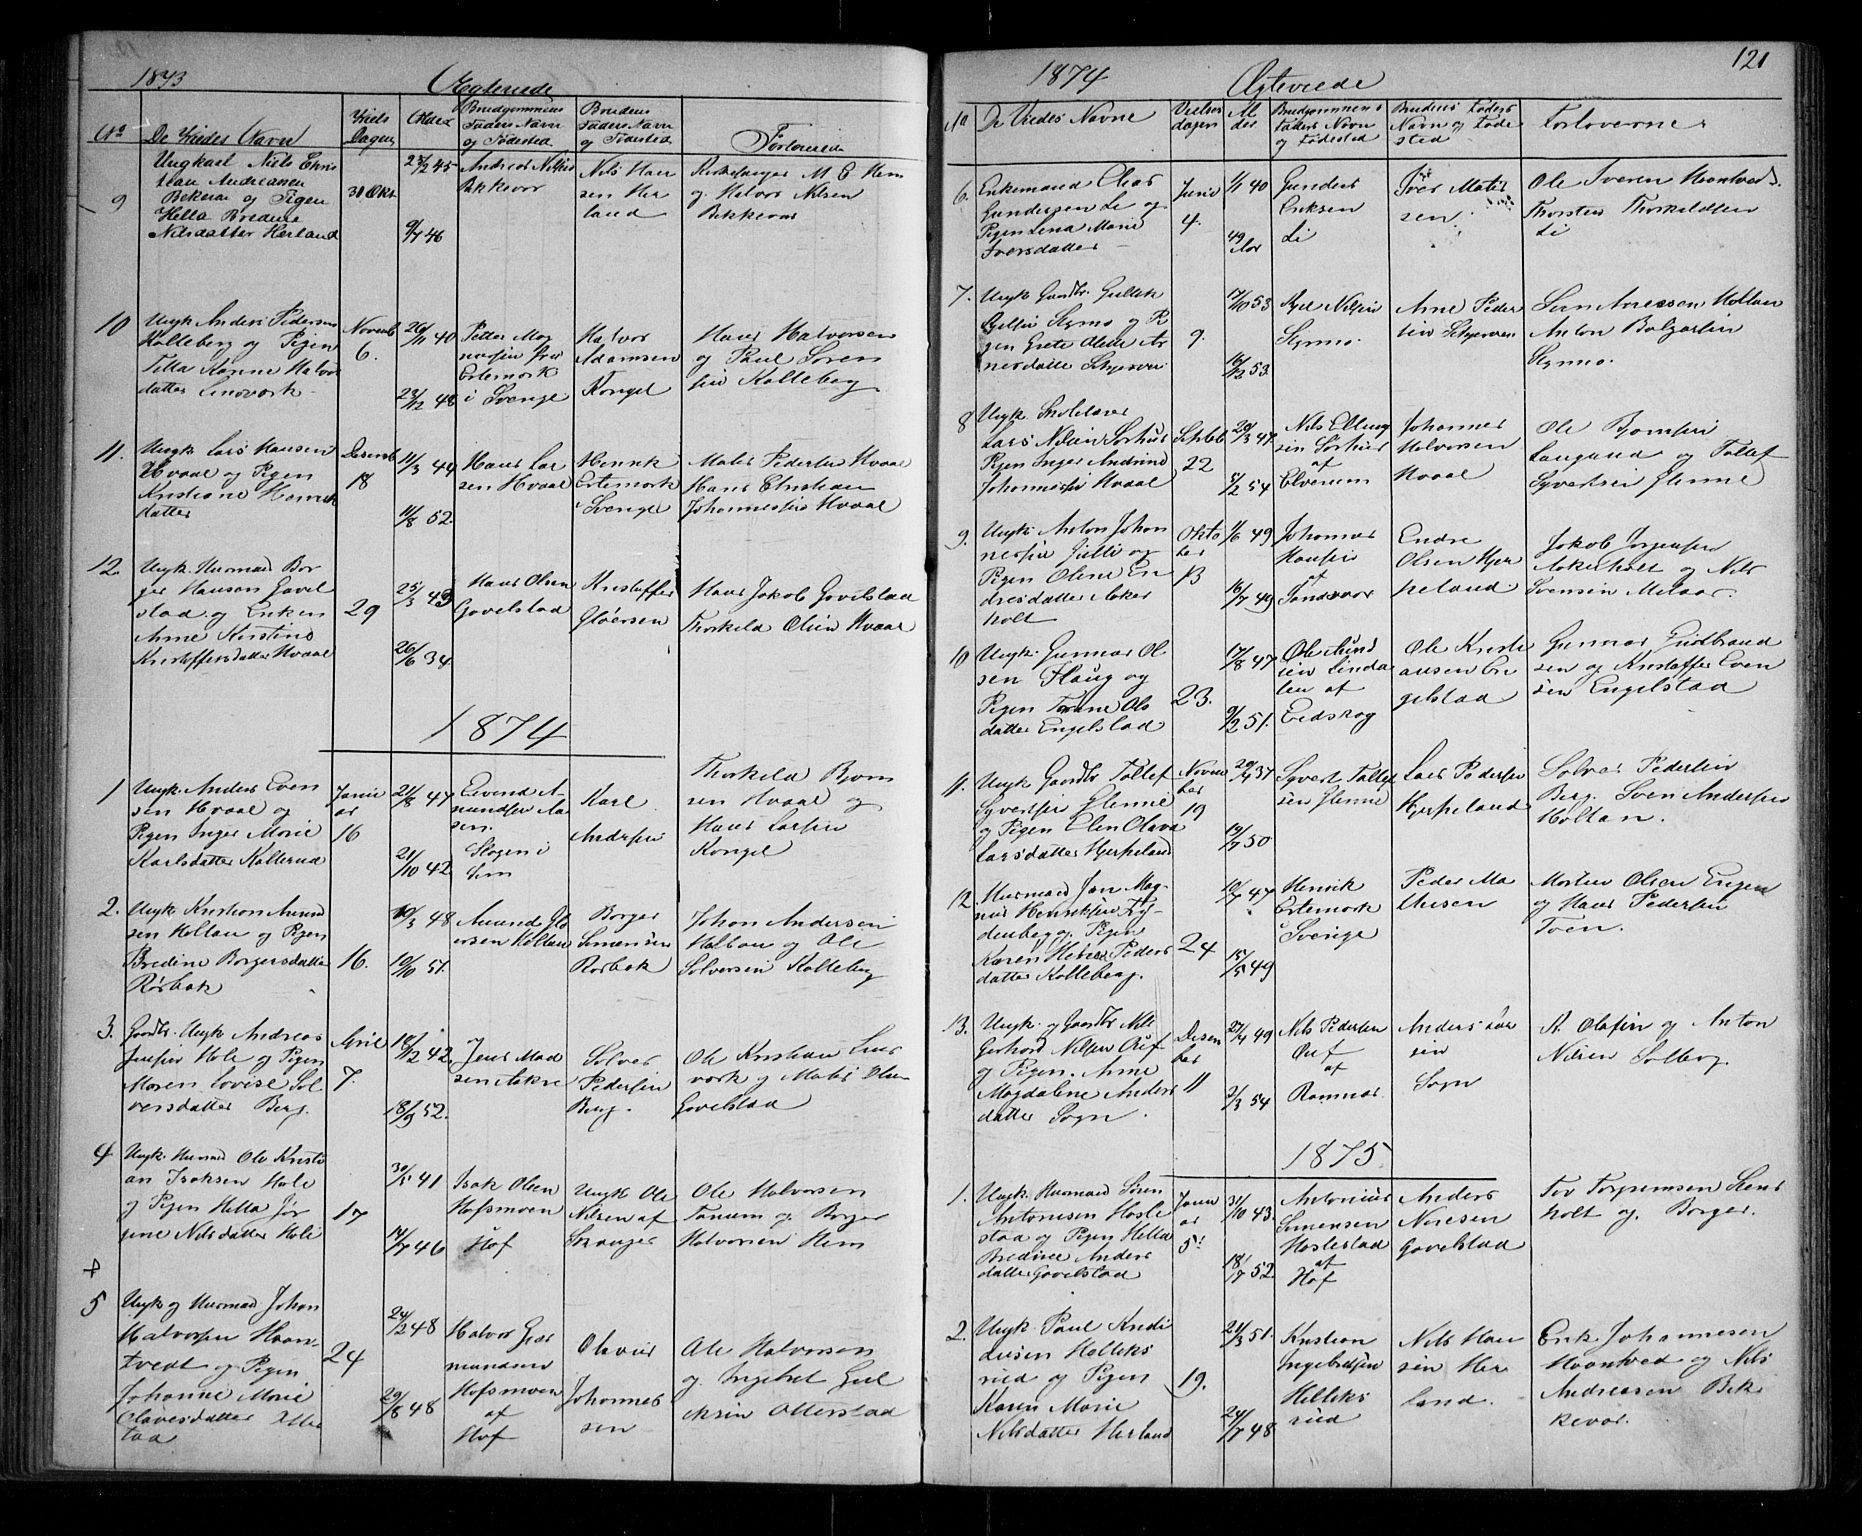 1873
Ægteviede
No
De Viedes Navn
Viels
Dagen
Alder
Brudgommens
Faders Navn
og Fødested
Brudens
Faders Navn
og Fødested
Forlovere
9
Ungkarl Nils Chris
tian Andreassen
Bekevar og Pigen
Hella Bredine
Nilsdatter Herland
30 Okt
9/7 46
Andreas Nilsen
Bekkevar
Nils Han
sen Her
land
M C Hem
og Halvor Nilsen
Bekkevar
10
Ungk Anders Pedersen
Kolleberg og Pigen
Halvors
datter
Novemb
6.
26/11 40
23/12 48
Petter Mag
nussen fra
Estemork
i Sverige
Halvor
Adamsen
Kongel
Hans Halvorsen
og Paul Soren
sen Kolleberg
11.
Ungk Lars Hansen
Hvaal og Pigen
Kristiane Henrik
datter
Desemb
18
11/3 44
11/8 52.
Hans Lar
sen Hvaal
Henrik
Estemork
Sverige
Matis Pedersen Hvaal
Hans Christian
Johannessen Hvaal
12.
Ungk. Husmand Bor
ger Hansen Gavel
stad og Enken
Anne Kirstine
Kristoffersdatter Hvaal
29
25/3 43
26/6 34
Hans Olsen
Gavelstad
Kristoffer
Gløersen
Hans Jakob Gavelstad
Thorkild Olsen Hvaal
1874
1
Ungk Anders Even
sen Hvaal og
Pigen Inger Marie
Karlsdatter Kolterud
Janu
ar
16
21/8 47
21/10 42.
Eivend A
mundsen Aa
sen.
Slagen i
Sem
Karl
Andersen
Thorkild Bjorn
sen Hvaal og
Hans Larsen
Kongel
2.
Ungk Kristian Amund
sen Holtan og Pigen
Bredine Borgersdatter
Rørbak
16.
10/3 48
10/10 51.
Amund Ol
sen Holtan
Borger
Simensen
Rorbak
Johan Andersen
Holtan og Ole
Solversen Kolleberg
3.
Gaardbr. Ungk Andreas
Jensen Hole og Pigen
Maren Lovise Sol
versdatter Berg.
April
7.
18/12 42
18/9 52.
Jens Mad
sen Askre
Solver
Pedersen
Berg.
Ole Kristian Lins
vork og Matis Olsen
Gavelstad
4
Ungk. Husmd Ole Kristi
an Isaksen Hole
og Pigen Hella Jør
gine Nilsdatter Hole
17
30/5 41
14/7 46
Isak Olsen
Hofsmoen
Hof
Ungk Ole
Nilsen af
Stranger
Ole Halvorsen
Tanum og Borger
Halvorsen Hem
5
Ungk og Husmand Johan
Halvorsen Haan-
tvedt og Pigen
Johanne Marie
Olavesdatter Otter
stad
24
24/2 48
29/8 48
Halvor Gud
mundsen
Hofsmoen
af
Hof
Olaves
Johannes
sen
Ole Halvorsen
og Ingebret Gul
iksen Otterstad
121
1874
Ægteviede
No
De Viedes Navne
Vielses
dagen
Al
der
Brudgommens
Faders Navn
og Fødested
Brudens Faders
Navn og Føde
sted
Forloverne
6.
Enkemand Claus
Gundersen Li og
Pigen Lena Marie
Iversdatter
Junie
4.
1/1 40
49
Aar
Gunder
Eriksen
Li
Iver Matis
sen
Ole Iversen Haantved.
Thorsten Thorkildsen
Li
7.
Ungk. Gaardbr. Gullik
Kjelsen Stymo og Pi
gen Grete Oline Ar
nesdatter Skjerven
9.
17/10 53
16/2 53.
Kjel Nilsen
Stymo
Arne Peder
sen Skjerven
Sven Arnesen Holtan
Anton Bolgarsen
Stymo.
8
Ungk. Skolelærer
Lars Nilsen Sorhus
Pigen Inger Andrine
Johannessen Hvaal
Septeb
22
29/3 47.
5/2 54
Nils Elling
sen Sorhus
af
Elverum
Johannes
Halvorsen
Hvaal
Ole Bjornsen
Langaard og Tollef
Syvertsen Glenne
9.
Ungk. Anton Johan
nessen Jelli og
Pigen Oline En
dresdatter Aaker
holt
Okto
ber
13
1/6 49
16/7 49
Johannes
Hansen
af
Sandevar
Endre
Olsen Hjer
peland
Jakob Jorgensen
Akerholt og Nils
Svensen Melaas.
10
Ungk. Gunnar Ol
sen Flaug og
Pigen Torine Ols
datter Engelstad
23.
17/8 47
9/2 51.
Ole Amund
sen Linda
len af
Eidskog
Ole Kristi
ansen En
gelstad
Gunnar Gudbrand
sen og Kristoffer Even
sen Engelstad
11.
Ungk Gaardbr Tollef
Syversen Glenne
og Pigen Elen Olava
Larsdatter Hjerpeland
Novem
ber
19
29/4 37
19/7 50
Syvert Tollef
sen Glenne
Lars Pedersen
Hjerpeland
Solver Pedersen
Berg. Sven Andersen
Holtan.
12.
Husmand Jan Mag-
nus Henriksen Fry-
denberg og Pigen
Karen Helene Peders
datter Kolleberg.
24
10/7 47
15/5 49
Henrik
Estemork
Sverige
Peder Ma
thisen
Morten Olsen Engen
og Hans Pedersen
Tven.
13.
Ungk. og Gaardbr Nils
Gerhard Nilsen Ruf
og Pigen. Anne
Magdalene Anders
datter Sogn.
Desem
ber
11
27/4 49
2/3 54
Nils Pedersen
Ruf
af
Ramnæs
Anders Iver
sen
Sogn
A. Olafsen og Anton
Nilsen Solberg
1875
1.
Ungk. Husmand Søren
Antonisen Hasle
stad og Pigen Hella
Bredine Anders
datter Gavelstad
Janu
ar
5.
31/10 43.
18/7 52.
Antonius
Simensen
Haslestad
af
Hof
Anders
Niresen
Gavelstad
Tov Torgrimsen Sten
holt og Borger.
2.
Ungk. Paul Kristi
ansen Helleks
rud og Pigen
Karen Marie
Nilsdatter Herland
19.
21/3 51.
24/7 48
Kristian
Ingebretsen
Helleks
rud
Nils Han
sen Her
land.
Erik Johannesen
Haantved og Nils
Andreasen Bek
kevar.